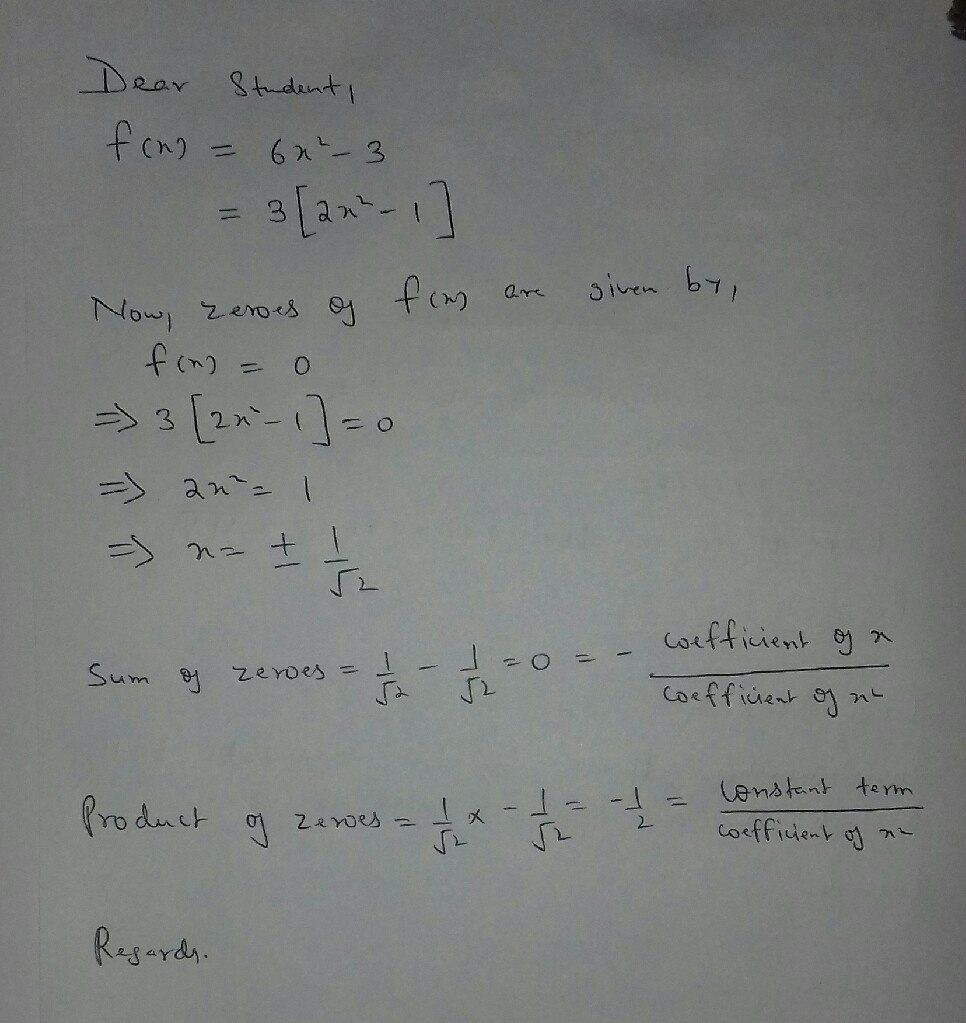 Dear Student,
f(x) = 6x² - 3
= 3[2x² - 1]
Now, zeroes of f(x) are given by,
f(x) = 0
⇒ 3[2x² - 1] = 0
⇒ 2x² = 1
⇒ x = ± 1/√2
Sum of zeroes = 1/√2 - 1/√2 = 0 = - coefficient of x / coefficient of x²
Product of zeroes = 1/√2 × - 1/√2 = -1/2 = constant term / coefficient of x²
Regards.